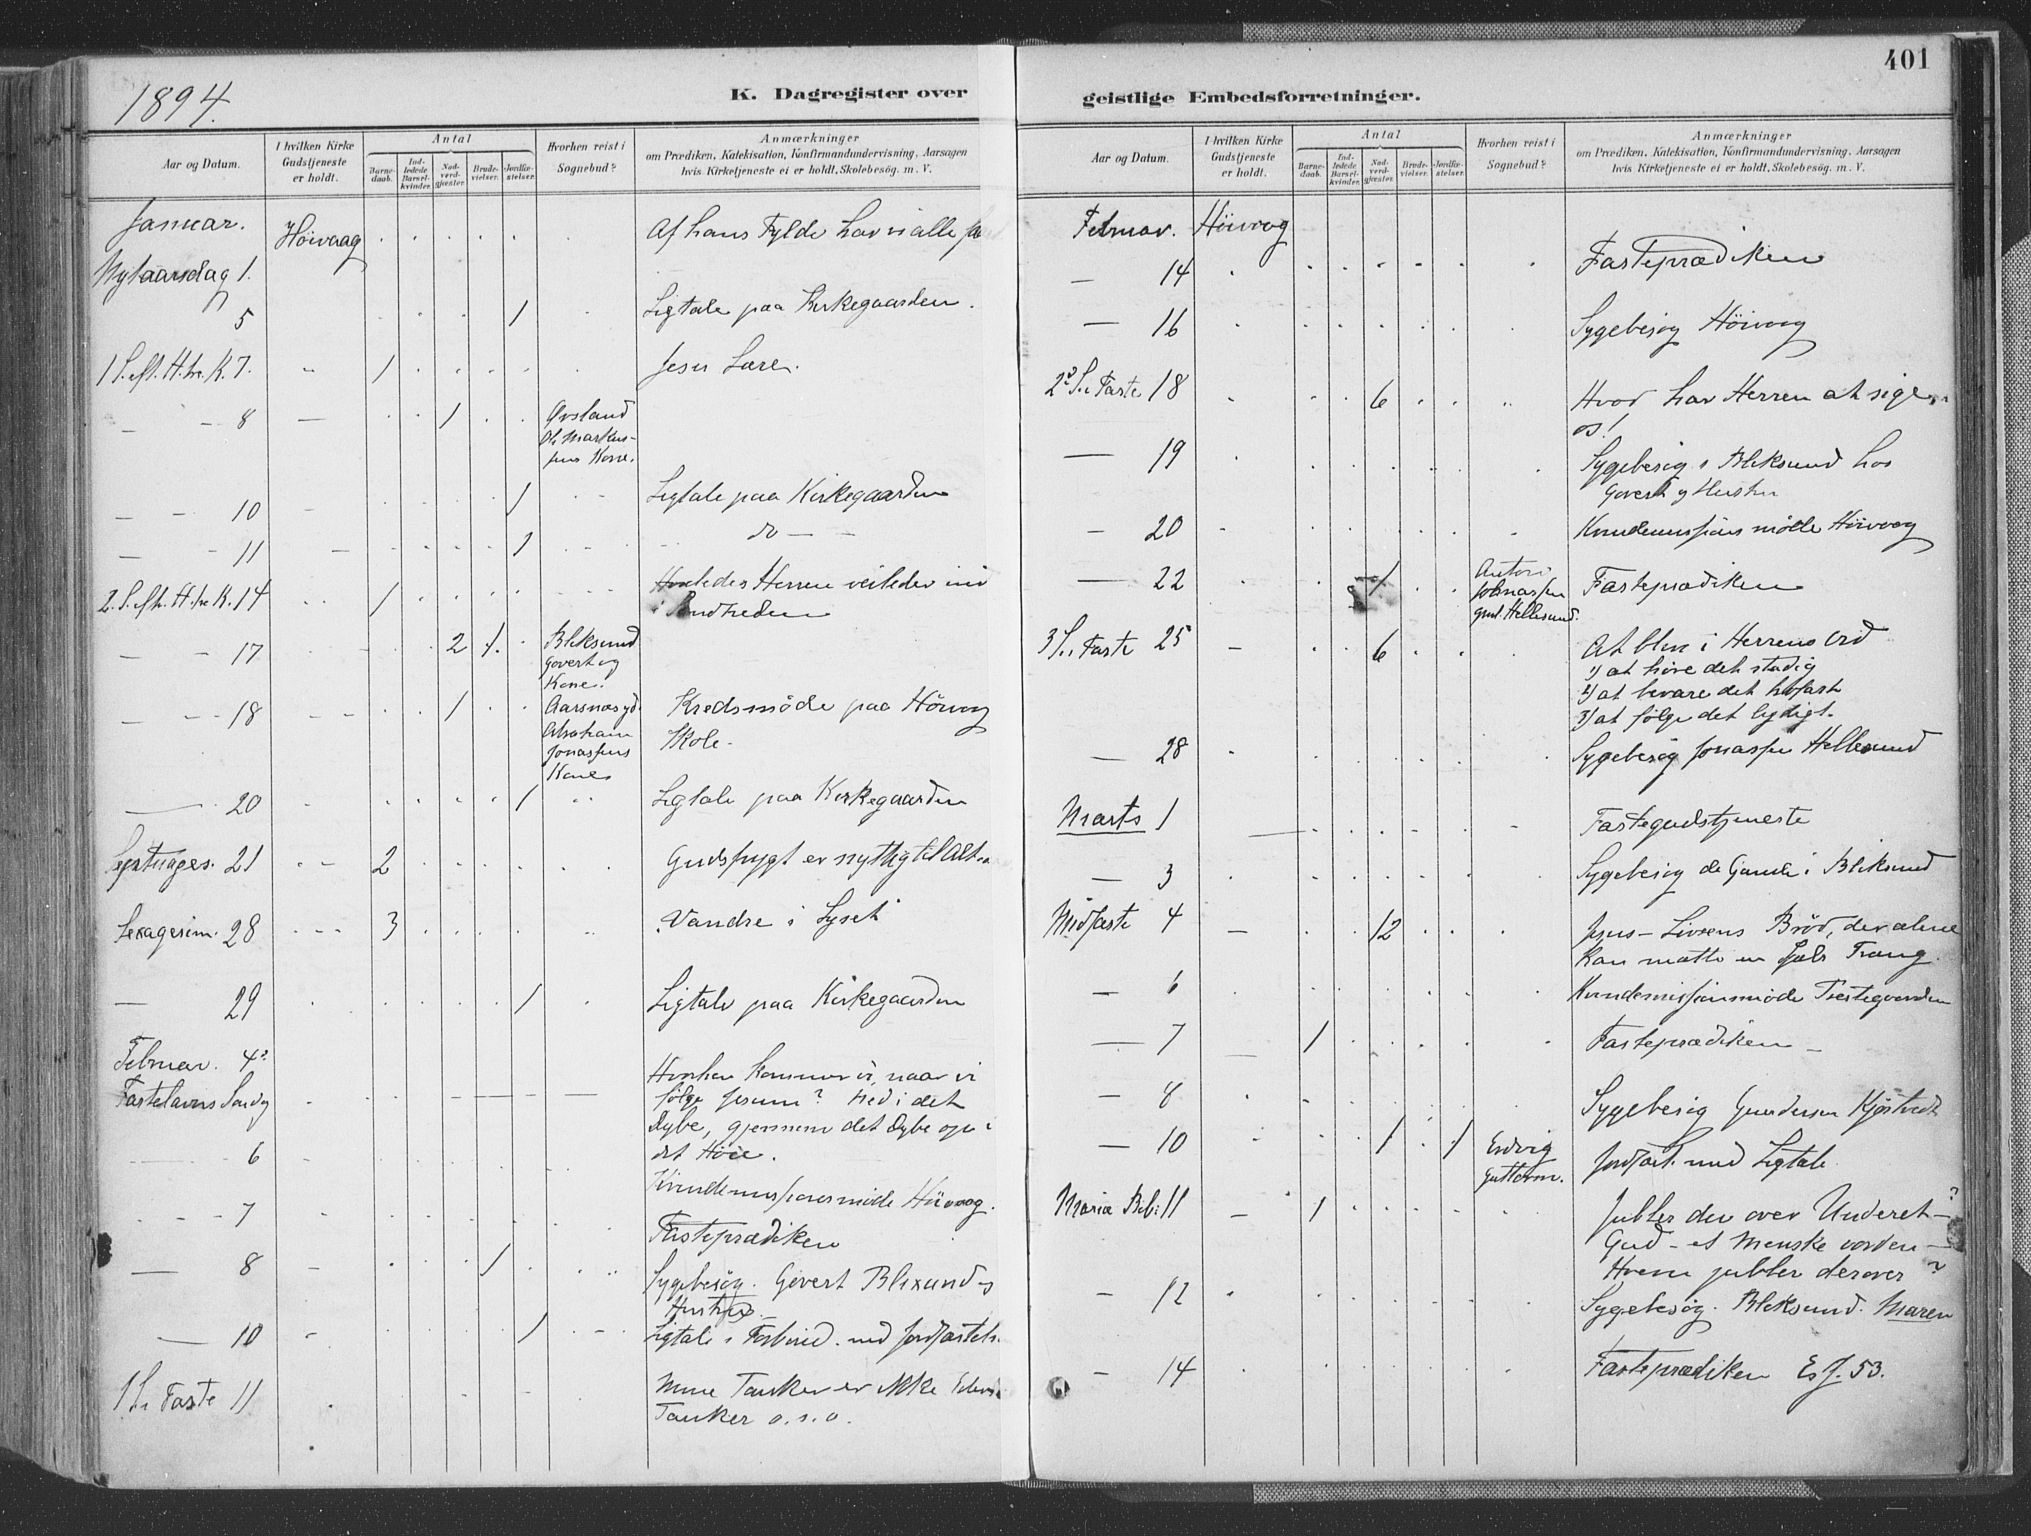 401
1894.
K. Dagregister over geistlige Embedsforretninger.
Aar og Datum.
I hvilken Kirke Gudstjeneste er holdt.
Antal
Barnedaab.
Indledede Barselkvinder.
Nadverdgjæster.
Brudevielser.
Jordfæstelser.
Hvorhen reist i Sognebud?
Anmærkninger
om Prædiken, Katekisation, Konfirmandundervisning, Aarsagen
hvis Kirketjeneste ei er holdt, Skolebesög. m. V.
Januar. Höivaag
Nytaarsdag 1. Af hans Fylde har vi alle
5 1 Ligtale paa Kirkegaarden.
1 S. eft. H. tre K. 7. 1 Jesu Lære.
— - 8 — 1 Øvsland
Ol. Markus-
sens Kone.
— - 10 1 Ligtale paa Kirkegaarden
— - 11 — 1 do — -
2. S. eft. H. tre K. 14 1 Hvorledes Herren veileder ind
i Sandheden
— - 17 2 1. Bleksund
Govert og
Kone.
— - 18 1 Aarsnes yd.
Abraham
Jonassens
Kone
Kredsmöde paa Höivaag
Skole.
— 20 1 Ligtale paa Kirkegaarden
Septuages. 21 2 Gudsfrygt er nyttig til Alt
Sexagesim. 28 3 Vandre i Lyset
— 29 1 Ligtale paa Kirkegaarden
Februar. 4
Fastelavns Sondag
Hvorhen kommer vi, naar vi
følge Jesum? Ned i det
Dybe, gjennem det Dybe op i
det Höie.
6 Kvindemissionsmöde Höivaag.
7 Fasteprædiken
— 8 1 Sygebesög. Govert Blixund og
Hustru
— 10 1 Ligtale i Forbind. med Jordfæstels.
1 S. i Faste 11 Mine Tanker er ikke Eders
Tanker o. s. v.
Aar og Datum.
I hvilken Kirke Gudstjeneste er holdt.
Antal
Barnedaab.
Indledede Barselkvinder.
Nadverdgjæster.
Brudevielser.
Jordfæstelser.
Hvorhen reist i Sognebud?
Anmærkninger
om Prædiken, Katekisation, Konfirmandundervisning, Aarsagen
hvis Kirketjeneste ei er holdt, Skolebesög. m. V.
Februar. Höivaag
— 14 Fasteprædiken
— 16 Sygebesög Höivaag
2 S. i Faste 18 6 Hvad har Herren at sige
os!
— 19 Sygebesög i Bleksund hos
Govert og Hustru
— 20 Kvindemissions möde Höivaag
— 22 1 Anton
Johnassen
Hellesund.
Fasteprædiken
3 S. i Faste 25 — 6 At blive i Herrens Ord
1) at höre det stadig
2) at bevare det
3) at følge det lydigt.
— 28 Sygebesög Jonassen Hellesund
Marts 1 — Fastegudstjeneste
— 3 Sygebesög de Gamle i Bleksund
Midfaste 4 — 12 Jesus – Livsens Bröd, der alene
kan mætte en Sjæls Trang.
— 6 Kvindemissionsmöde Prestegaarden
— 7 — 1 Fasteprædiken —
— 8 Sygebesög Gundersen Kjöstvedt
— 10 1 1 Edvig
Guttorm.
Jordfæst. med Ligtale.
Mariæ Beb: 11 — 1 Jubler du over Underet —?
Gud – et Menske vorden —
Hvem jubler derover?
— 12 Sygebesög. Bleksund. Maren
— 14 Fasteprædiken Es. 53.